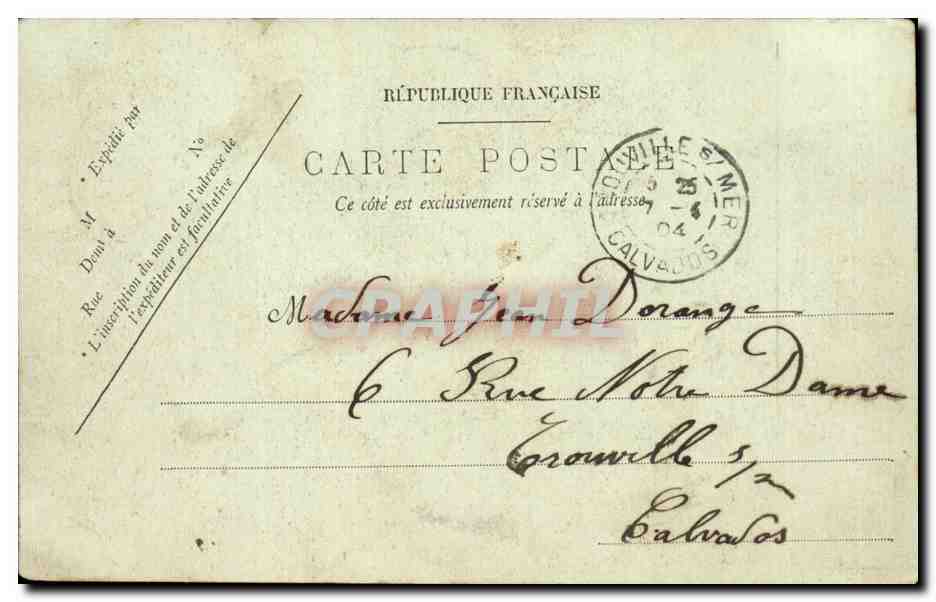 RÉPUBLIQUE FRANÇAISE
CARTE POSTALE
Ce côté est exclusivement réservé à l'adresse
Expédié par
M
Demt à
Rue No
• L'inscription du nom et de l'adresse de
l'expéditeur est facultative
TROUVILLE s/ MER
5 25
7 - 4
04
CALVADOS
GRAPHIL
Madame Jean Dorange
6 Rue Notre Dame
Trouville s/m
Calvados